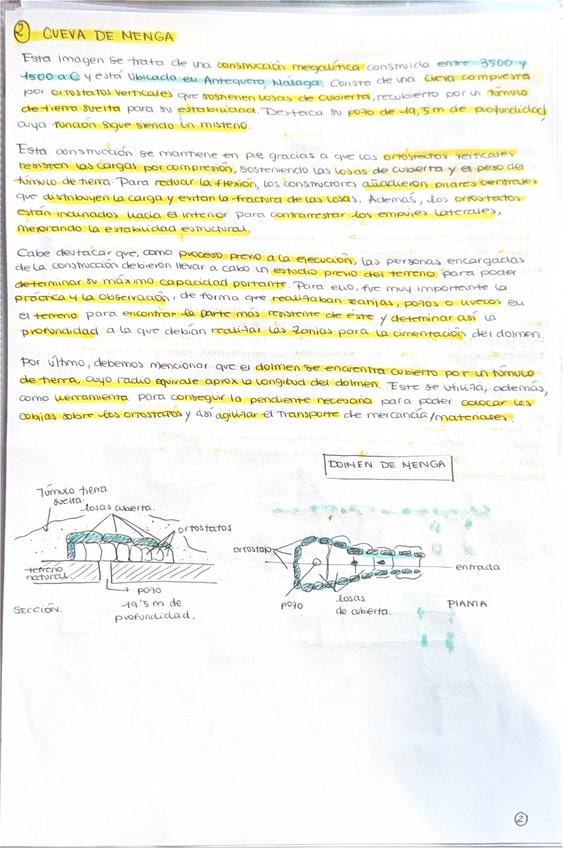 2 CUEVA DE MENGA
Esta imagen se trata de una construcción megalítica construida entre 3500 y
1500 a.C y está ubicada en Antequera, Málaga. Consta de una cueva compuesta
por ortostatos verticales que sostienen losas de cubierta, recubierto por un túmulo
de tierra suelta para su estabilidad. Destaca su pozo de -19,5m de profundidad
cuya función sigue siendo un misterio.
Esta construcción se mantiene en pie gracias a que los ortostatos verticales
resisten las cargas por compresión, sosteniendo las losas de cubierta y el peso del
túmulo de tierra. Para reducir la flexión, los constructores añadieron pilares centrales
que distribuyen la carga y evitan la fractura de las losas. Además, los ortostatos
están inclinados hacia el interior para contrarrestar los empujes laterales,
mejorando la estabilidad estructural.
Cabe destacar que, como proceso previo a la ejecución, las personas encargadas
de la construcción debieron llevar a cabo un estudio previo del terreno para poder
determinar su máxima capacidad portante. Para ello, fue muy importante la
práctica y la observación, de forma que realizaban zanjas, pozos o huecos en
el terreno para encontrar la parte más resistente de éste y determinar así la
profundidad a la que debían realizar las zanjas para la cimentación del dolmen.
Por último, debemos mencionar que el dolmen se encuentra cubierto por un túmulo
de tierra, cuyo radio equivale aprox la longitud del dolmen. Este se utiliza, además,
como herramienta para conseguir la pendiente necesaria para poder colocar las
cobijas sobre los ortostatos y así agilizar el transporte de mercancía/materiales.
DOLMEN DE MENGA
Túmulo tierra
suelta.
losas cubierta.
ortostatos
terreno
natural
pozo
-19'5 m de
profundidad.
SECCIÓN.
ortostato
entrada
pozo
losas
de cubierta.
PLANTA
2